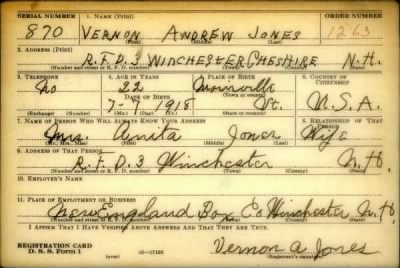 SERIAL NUMBER 1. NAME (Print) ORDER NUMBER
870 VERNON ANDREW JONES 1263
(First) (Middle) (Last)
2. ADDRESS (Print)
R.F.D.3 WINCHESTER CHESHIRE N.H.
(Number and street or R. F. D. number) (Town) (County) (State)
3. TELEPHONE 4. AGE IN YEARS 5. PLACE OF BIRTH 6. COUNTRY OF CITIZENSHIP
No 22
DATE OF BIRTH (Town or county)
7-7 1918 Vt. U.S.A.
(Exchange) (Number) (Mo.) (Day) (Yr.) (State or country)
7. NAME OF PERSON WHO WILL ALWAYS KNOW YOUR ADDRESS 8. RELATIONSHIP OF THAT PERSON
Mrs. Anita Jones Wife
(Mr., Mrs., Miss) (First) (Middle) (Last)
9. ADDRESS OF THAT PERSON
R.F.D.3 Winchester N.H.
(Number and street or R. F. D. number) (Town) (County) (State)
10. EMPLOYER'S NAME
11. PLACE OF EMPLOYMENT OR BUSINESS
New England Box Co Winchester N.H.
(Number and street or R. F. D. number) (Town) (County) (State)
I AFFIRM THAT I HAVE VERIFIED ABOVE ANSWERS AND THAT THEY ARE TRUE.
REGISTRATION CARD
D. S. S. Form 1 16—17105 Vernon A Jones
(Registrant's signature)